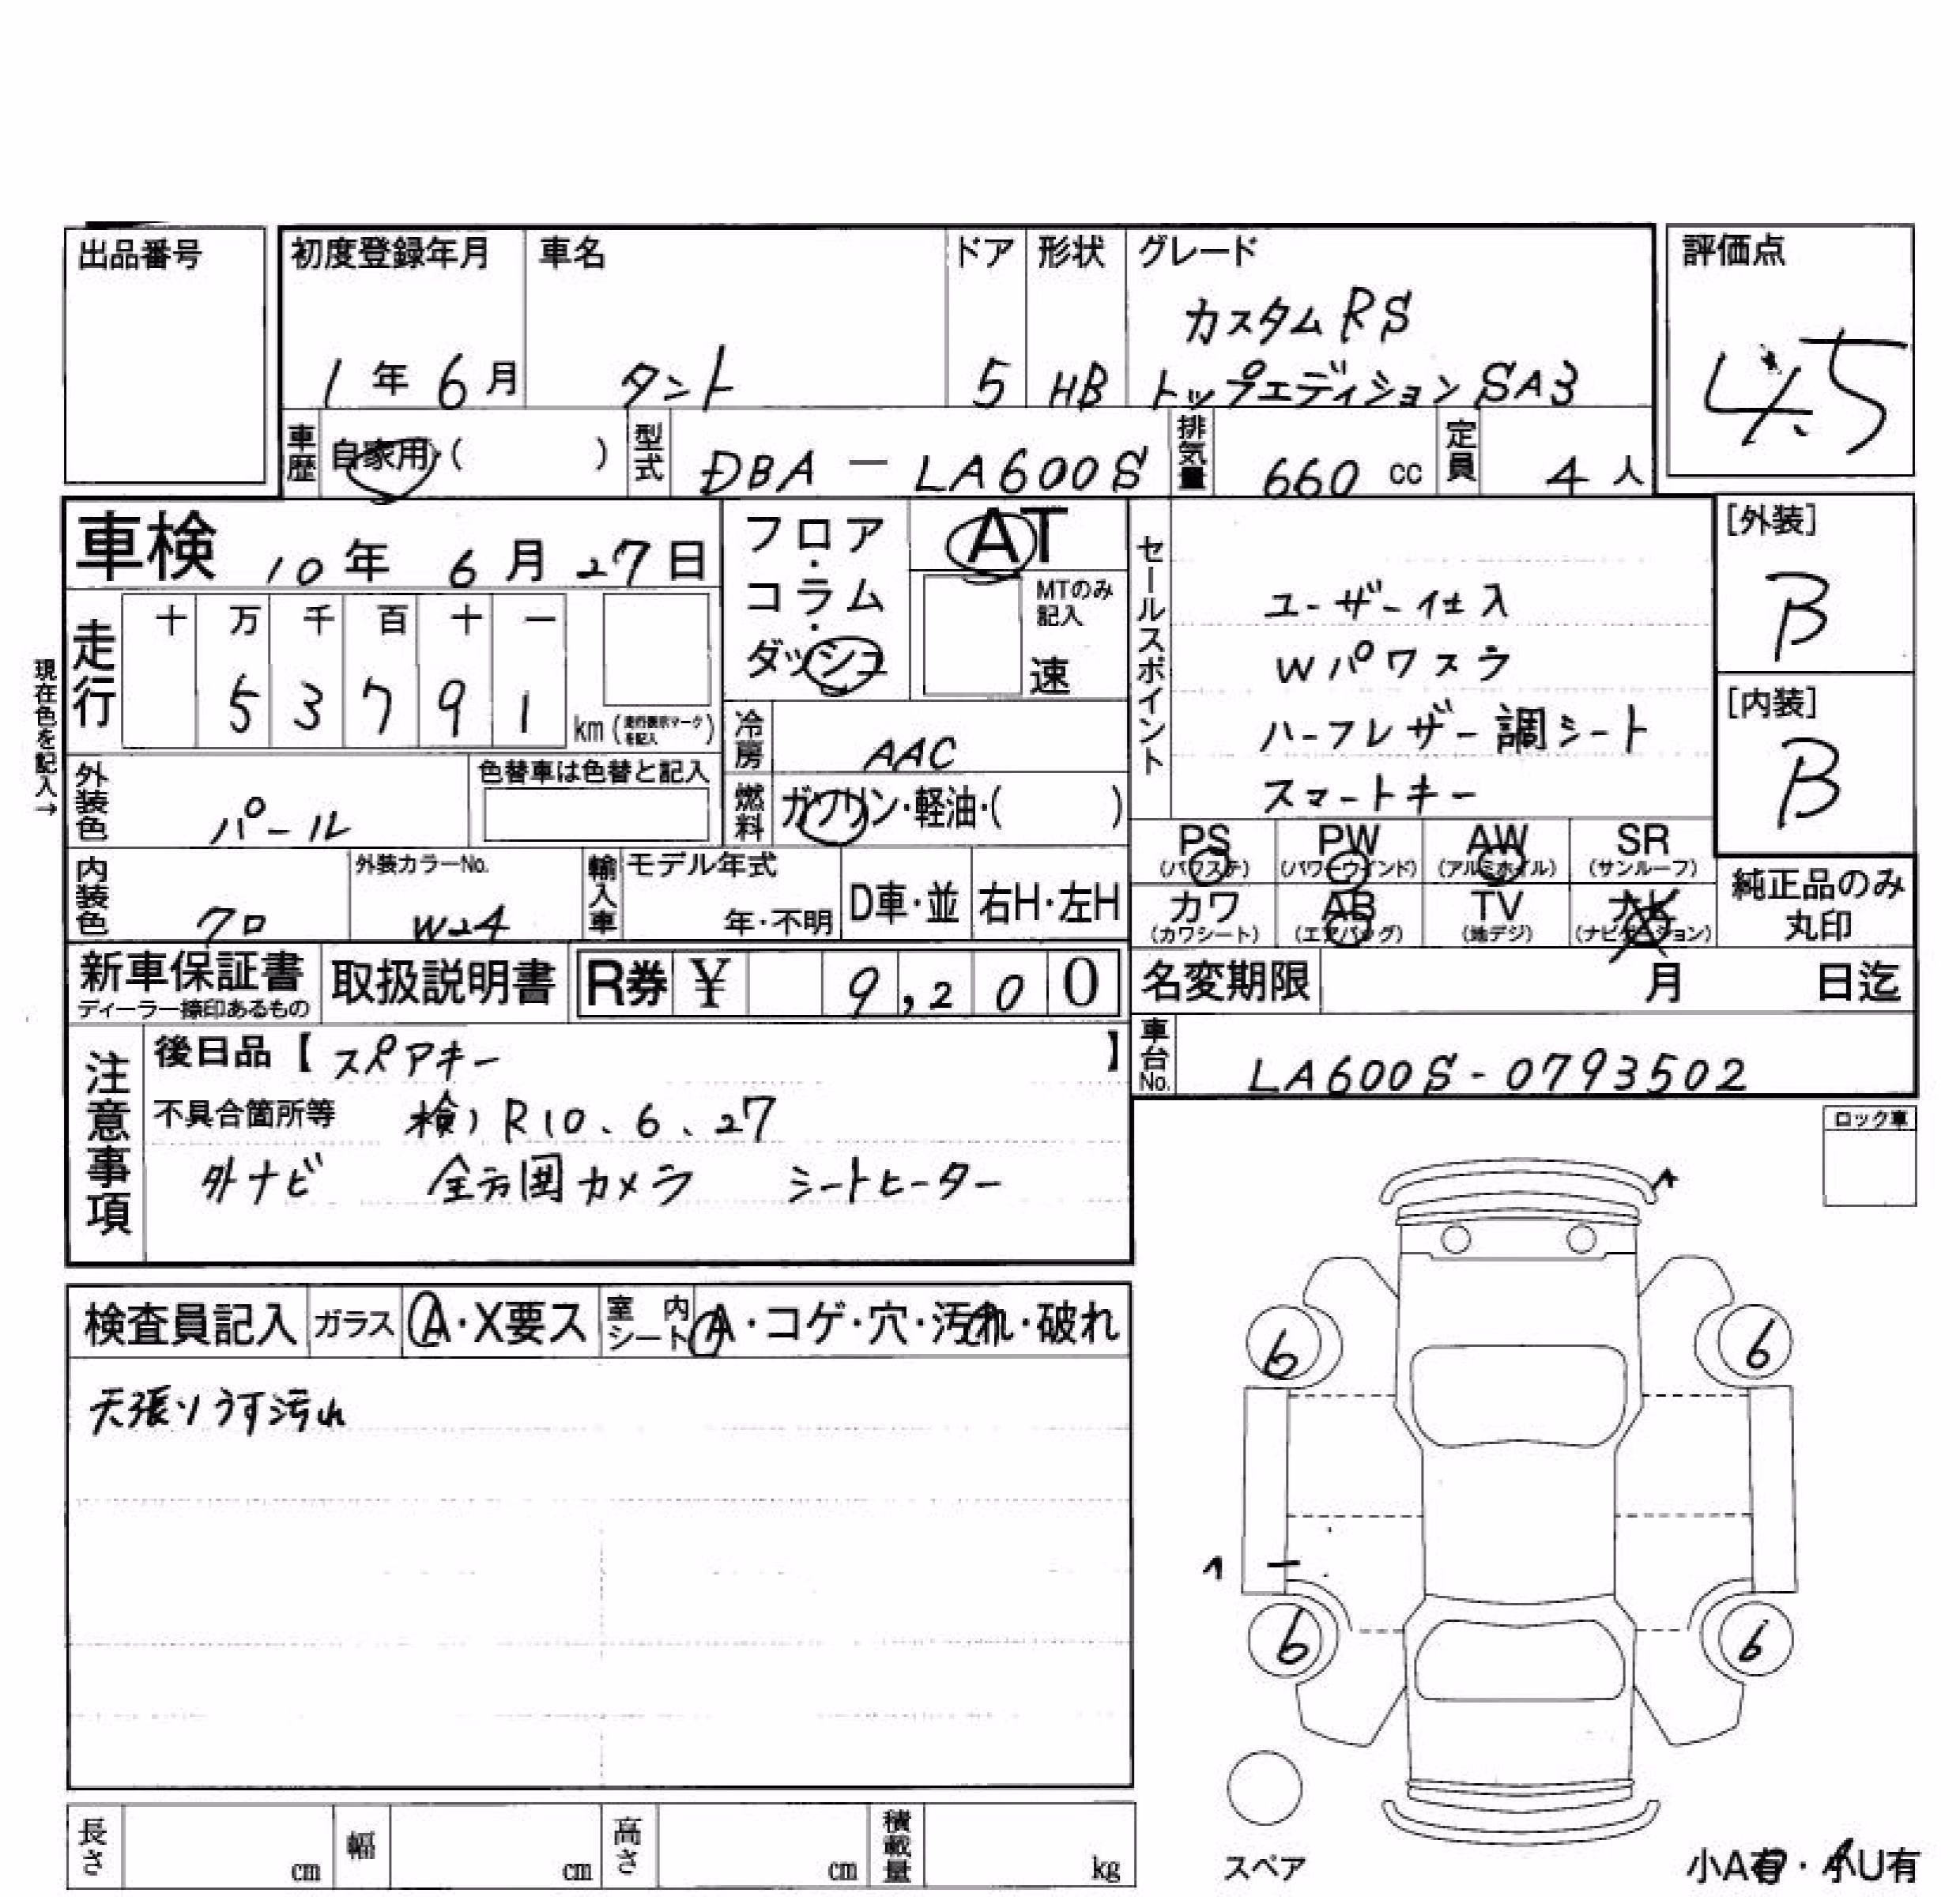 出品番号 初度登録年月 車名 ドア 形状 グレード 評価点
カスタムRS
1年6月 タント 5 HB トップエディションSA3
4.5
車歴 自家用・( ) 型式 DBA - LA600S 排気量 660 cc 定員 4人
車検 10年 6月 27日
フロア・コラム・ダッシュ
AT
MTのみ記入
速
走行 十 万 千 百 十 一
5 3 7 9 1 km (走行表示マークを記入)
現在色を記入→
冷房 AAC
燃料 ガソリン・軽油・( )
外装色 パール 色替車は色替と記入
内装色 クロ 外装カラーNo. W24 輸入車 モデル年式 年・不明 D車・並 右H・左H
セールスポイント
ユーザー仕入
Wパワスラ
ハーフレザー調シート
スマートキー
[外装]
B
[内装]
B
PS PW AW SR
(パワステ) (パワーウインド) (アルミホイル) (サンルーフ)
カワ AB TV ナビ
(カワシート) (エアバッグ) (地デジ) (ナビゲーション)
純正品のみ
丸印
新車保証書 取扱説明書 R券 ¥ 9,200
ディーラー捺印あるもの
名変期限 月 日迄
車台No. LA600S-0793502
注意事項
後日品【スペアキー】
不具合箇所等 検)R10.6.27
外ナビ 全方囲カメラ シートヒーター
ロック車
A
検査員記入 ガラス A・X要ス 室内シート A・コゲ・穴・汚れ・破れ
天張りうす汚れ
6 6
1
6 6
スペア
小A有・小U有
長さ cm 幅 cm 高さ cm 積載量 kg